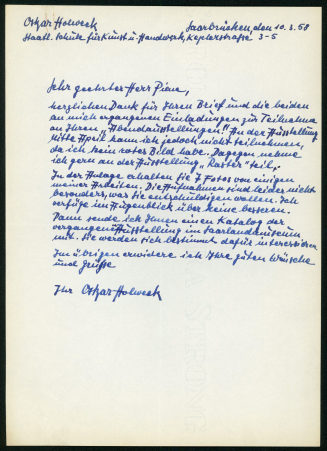 Oskar Holweck Saarbrücken, den 10.3.58
Staatl. Schule für Kunst u. Handwerk, Keplerstraße 3-5
Sehr geehrter Herr Piene,
herzlichen Dank für Ihren Brief und die beiden
an mich ergangenen Einladungen zur Teilnahme
an Ihren "Abendausstellungen". An der Ausstellung
Mitte April kann ich jedoch nicht teilnehmen,
da ich kein rotes Bild habe. Dagegen nehme
ich gern an der Ausstellung "Raster" teil.
In der Anlage erhalten Sie 7 Fotos von einigen
meiner Arbeiten. Die Aufnahmen sind leider nicht
besonders, was Sie entschuldigen wollen. Ich
verfüge im Augenblick über keine besseren.
Dann sende ich Ihnen einen Katalog der
vergangenen Ausstellung im Saarlandmuseum
mit. Sie werden sich bestimmt dafür interessieren
Im übrigen erwidere ich Ihre guten Wünsche
und Grüße
Ihr Oskar Holweck